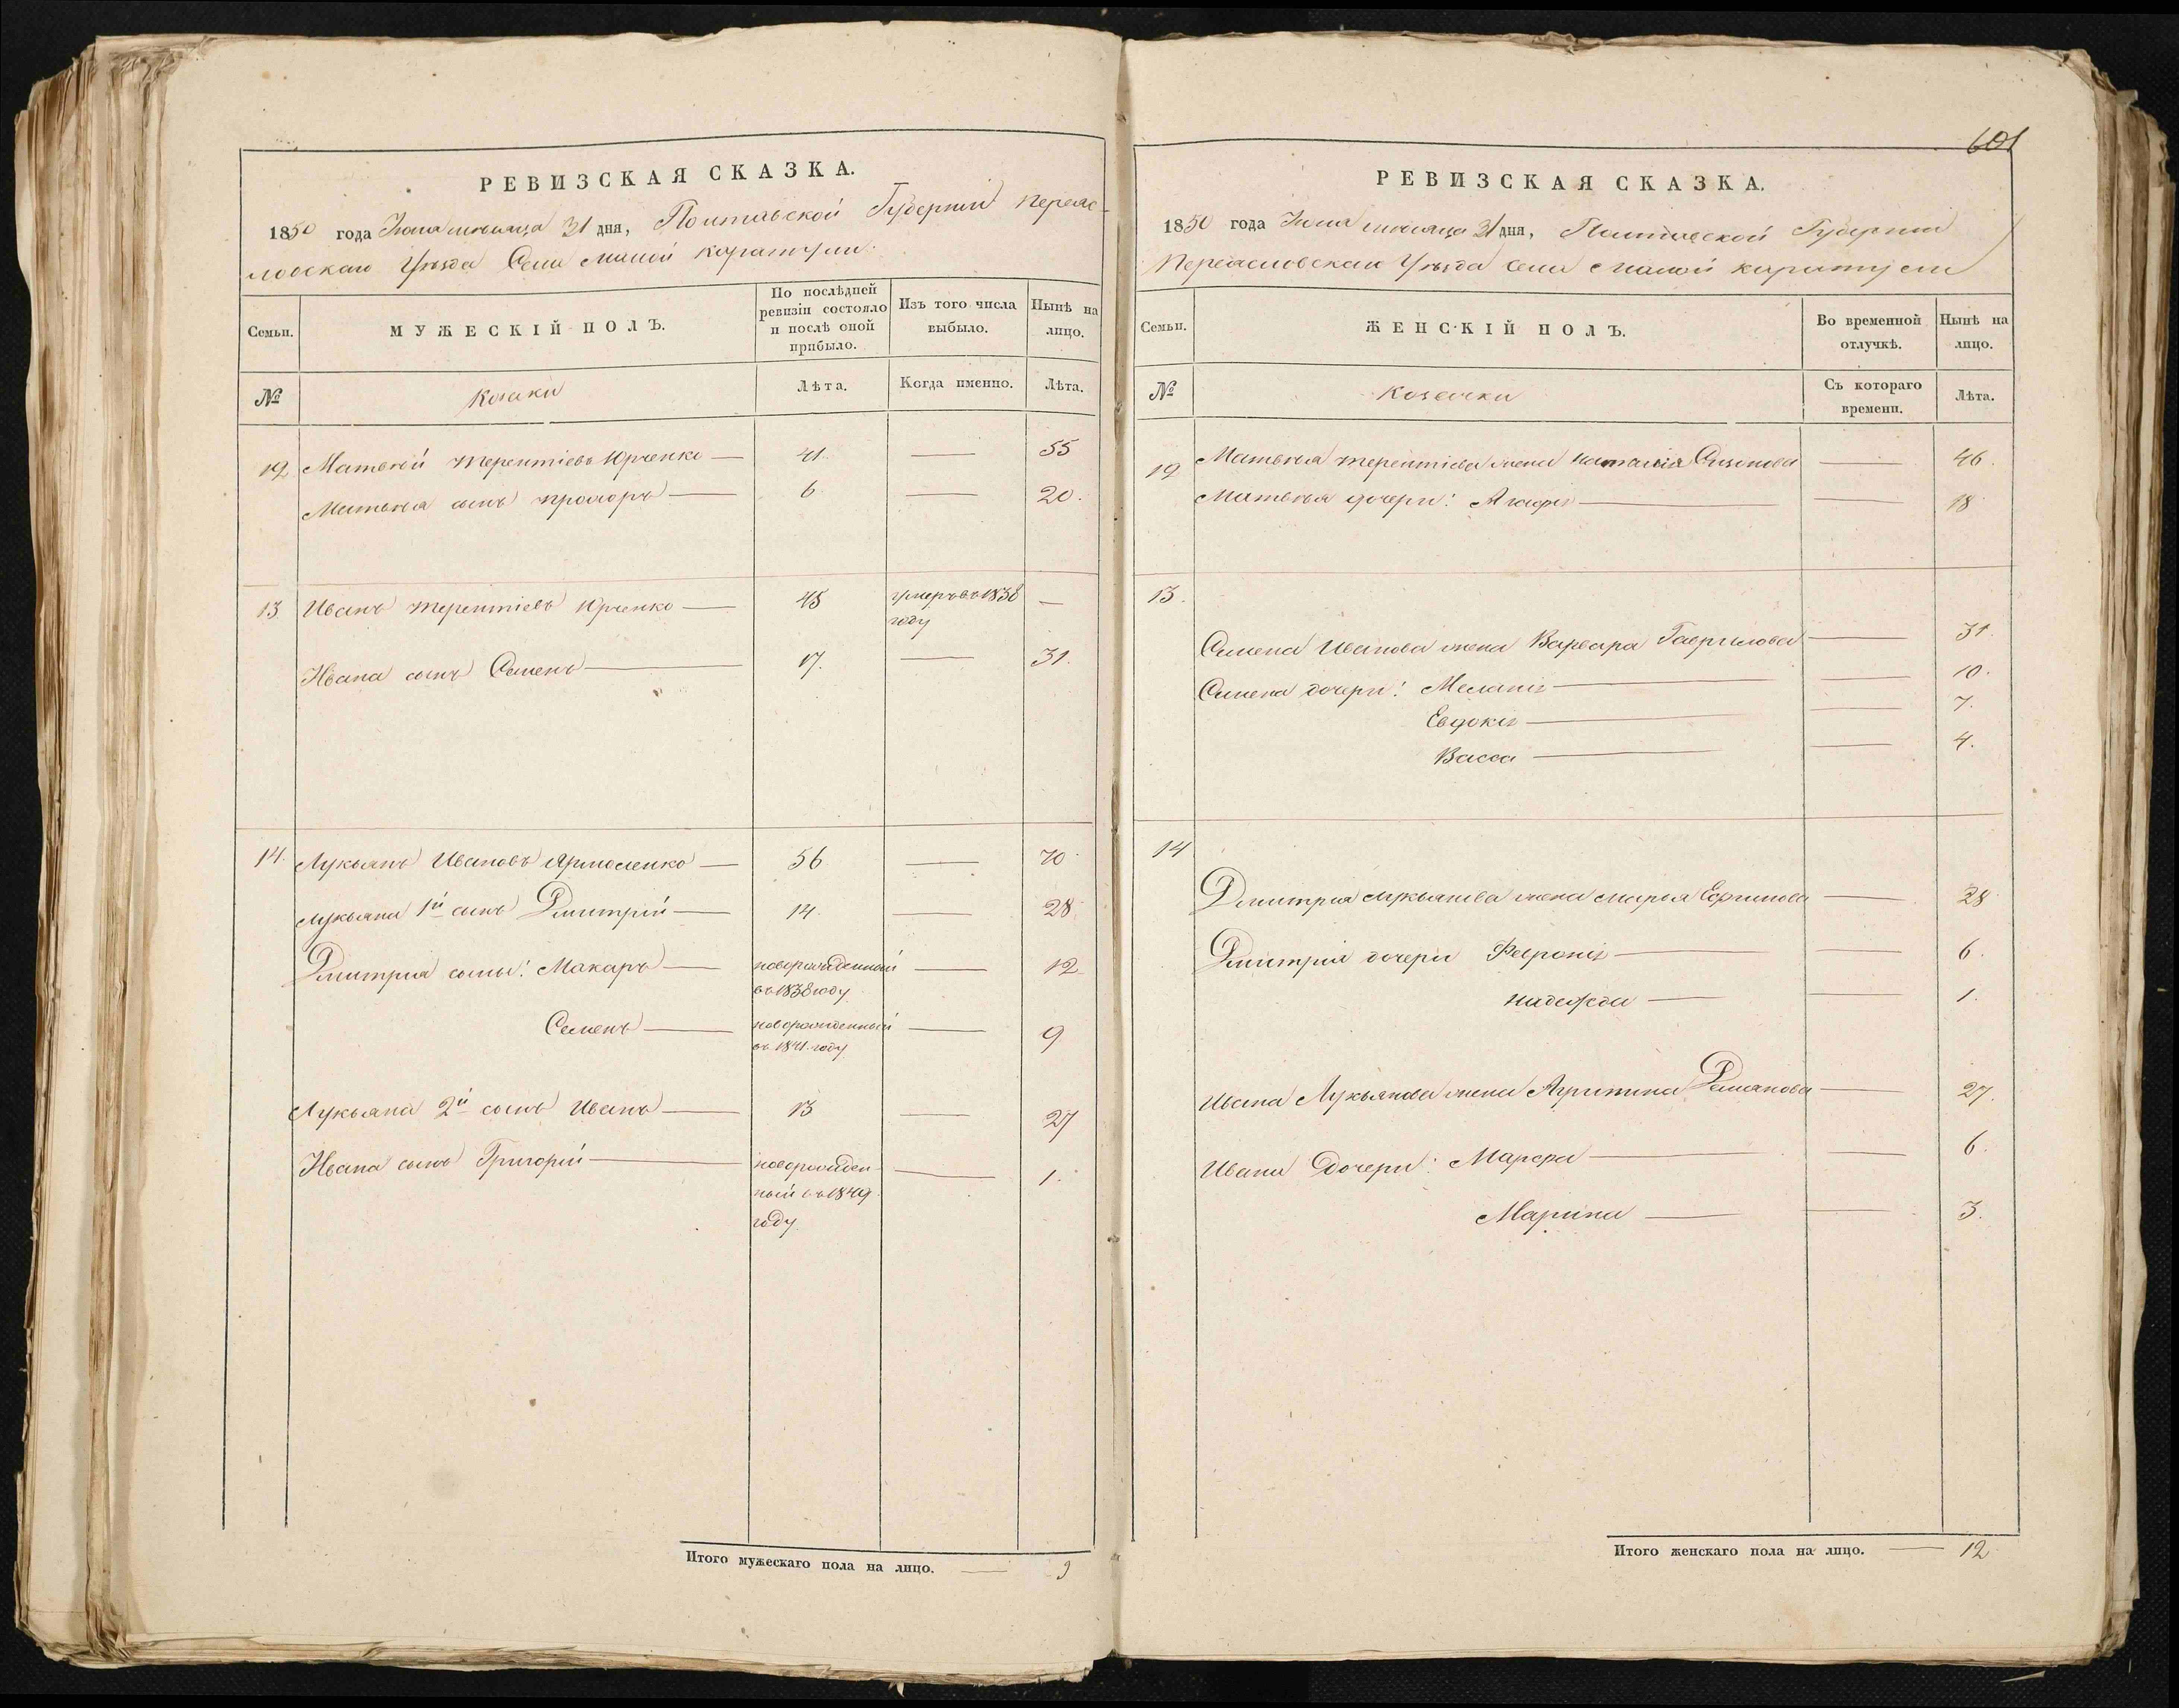 601
РЕВИЗСКАЯ СКАЗКА.
1850 года Июля месяца 31 дня, Полтавской Губерніи Переяс-
ловскаго Уѣзда Села Малой Каратули.
Семьи.
МУЖЕСКІЙ ПОЛЪ.
По послѣдней ревизіи состояло и послѣ оной прибыло.
Изъ того числа выбыло.
Нынѣ на лицо.
№
Козаки
Лѣта.
Когда именно.
Лѣта.
12 Матвей Терентіевъ Юрченко — 41. — 55
Матвея сынъ Прохоръ — 6 — 20.
13 Иванъ Терентіевъ Юрченко — 45 умеръ въ 1838 году —
Ивана сынъ Семенъ — 17. — 31.
14. Лукьянъ Ивановъ Ярмоленко — 56 — 70
Лукьяна 1й сынъ Дмитрій — 14. — 28
Дмитрия сыны: Макаръ — новорожденный въ 1838 году — 12
Семенъ — новорожденный въ 1841 году — 9
Лукьяна 2й сынъ Иванъ — 13 — 27
Ивана сынъ Григорій — новорожденный въ 1849 году. — 1.
Итого мужескаго пола на лицо. — 9
РЕВИЗСКАЯ СКАЗКА.
1850 года Июля месяца 31 дня, Полтавской Губерніи
Переясловскаго Уѣзда села Малой Каратули
Семьи.
ЖЕНСКІЙ ПОЛЪ.
Во временной отлучкѣ.
Нынѣ на лицо.
№
Козачки
Съ котораго времени.
Лѣта.
12 Матвея Терентіева жена Наталія — 46.
Матвея дочери: Агафія — 18
13.
Семена Иванова жена Варвара Гаврилова — 31.
Семена дочери: Меланія — 10.
Евдокія — 7.
Васса — 4.
14
Дмитрия Лукьянова жена Марья Ефимова — 28
Дмитрія дочери Феѵронія — 6.
Надежда — 1.
Ивана Лукьянова жена Агрипина Романова — 27.
Ивана Дочери: Марфа — 6.
Марина — 3.
Итого женскаго пола на лицо. — 12